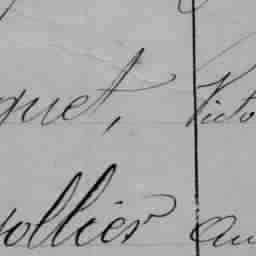 quet, Victo
ollier Au